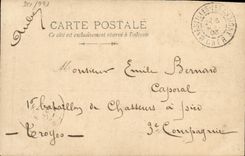 CARTE POSTALE
Ce côté est exclusivement réservé à l'adresse
Monsieur Emile Bernard
Caporal
1er bataillon de Chasseurs à pied
Troyes 3e Compagnie